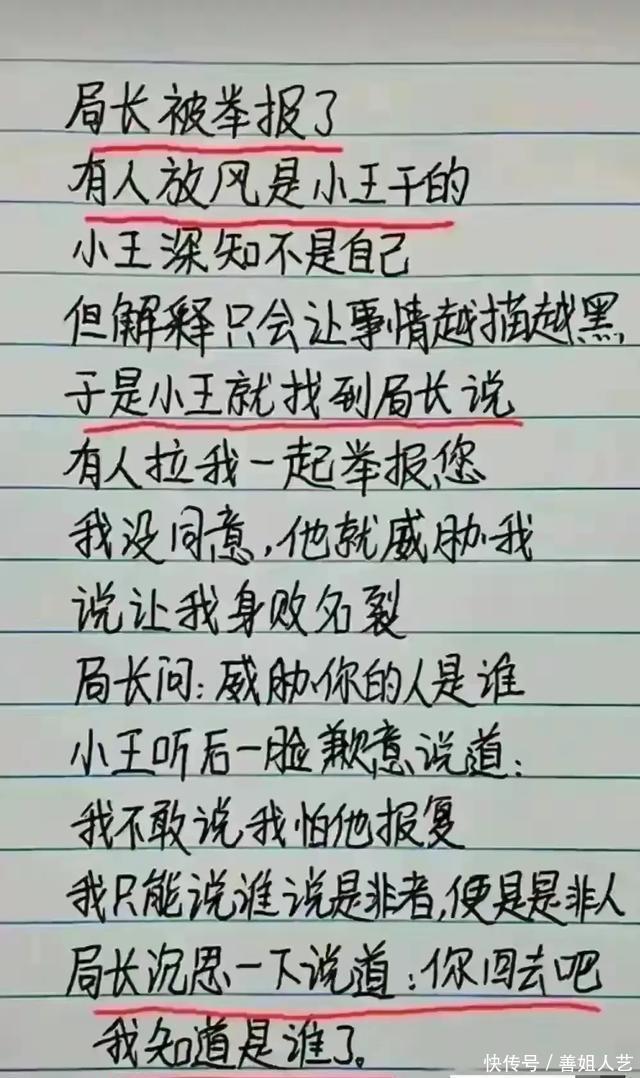 局长被举报了
有人放风是小王干的
小王深知不是自己
但解释只会让事情越描越黑
于是小王就找到局长说
有人拉我一起举报您
我没同意,他就威胁我
说让我身败名裂
局长问:威胁你的人是谁
小王听后一脸歉意说道:
我不敢说我怕他报复
我只能说谁说是非者,便是是非人
局长沉思一下说道:你回去吧
我知道是谁了。
快传号/善姐人艺